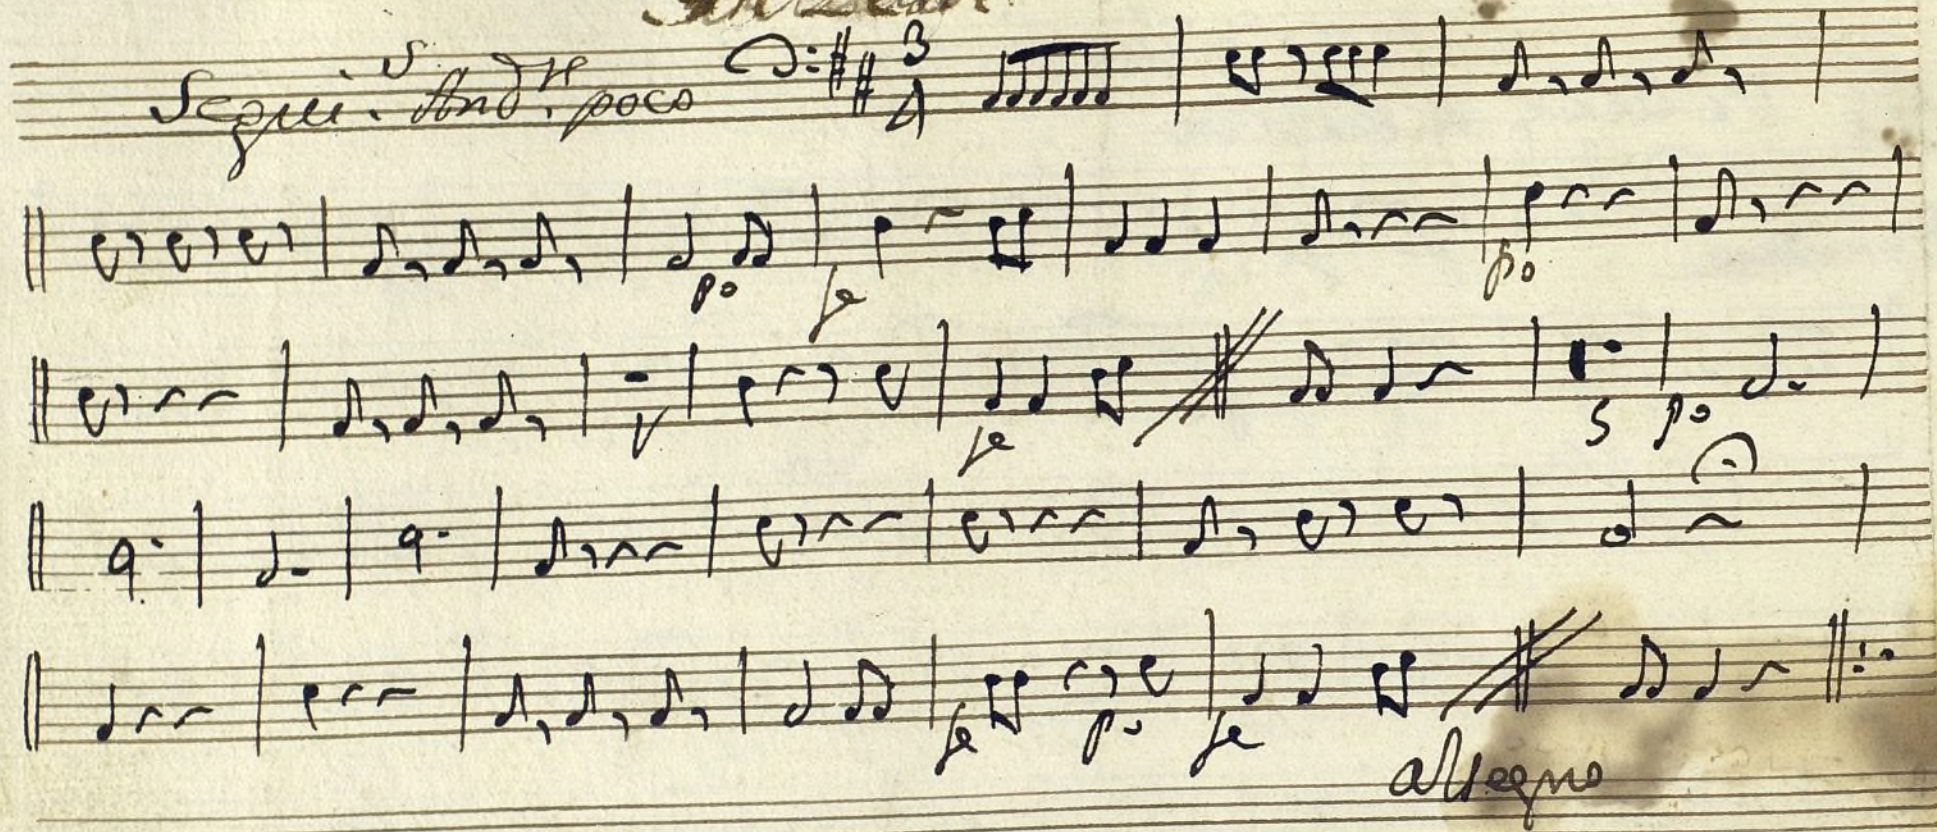 Segui. s And.te poco 3 4
po fe po
V fe S po
fe po fe
al segno